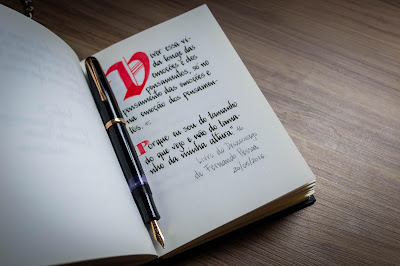 Viver essa vi-
da longe das
emoções e dos
pensamentos, só no
pensamento das emoções e
na emoção dos pensamen-
tos.
Porque eu sou do tamanho
do que vejo e não do tama-
nho da minha altura"
Livro do Desassossego
de Fernando Pessoa
20/05/2016